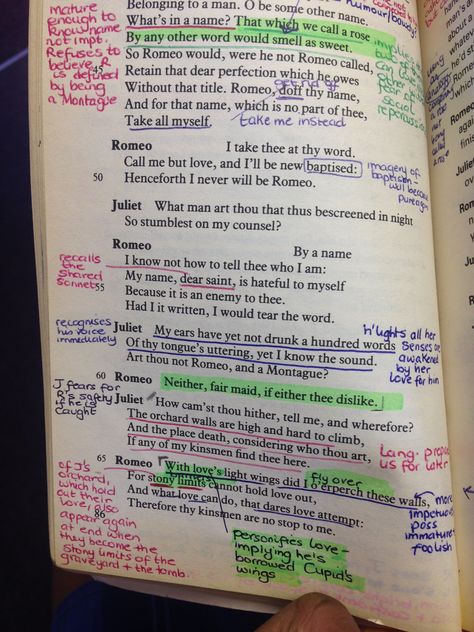 Belonging to a man. O be some other name.
What's in a name? That which we call a rose
By any other word would smell as sweet.
So Romeo would, were he not Romeo called,
45
Retain that dear perfection which he owes
Without that title. Romeo, doff thy name,
And for that name, which is no part of thee,
Take all myself.
take me instead
get rid of
mature
enough to
know name
not impt.
Refuses to
believe R
is defined
by being
a Montague
social
Romeo I take thee at thy word.
Call me but love, and I'll be new baptised:
50 Henceforth I never will be Romeo.
imagery of
baptism -
will become
pure again
Juliet What man art thou that thus bescreened in night
So stumblest on my counsel?
Romeo By a name
I know not how to tell thee who I am:
My name, dear saint, is hateful to myself
55 Because it is an enemy to thee.
Had I it written, I would tear the word.
recalls
the
shared
sonnet
Juliet My ears have yet not drunk a hundred words
Of thy tongue's uttering, yet I know the sound.
Art thou not Romeo, and a Montague?
recognises
his voice
immediately
h'lights all her
senses are
awakened
by her
love for him
60 Romeo Neither, fair maid, if either thee dislike.
Juliet How cam'st thou hither, tell me, and wherefore?
The orchard walls are high and hard to climb,
And the place death, considering who thou art,
If any of my kinsmen find thee here.
J fears for
R's safety
if he is
caught
Lang.
us for later
65 Romeo With love's light wings did I o'erperch these walls,
fly over
For stony limits cannot hold love out,
And what love can do, that dares love attempt:
Therefore thy kinsmen are no stop to me.
of J's
orchard,
which hold
out their
love, also
appear again
at end when
they become the
stony limits of the
graveyard + the tomb.
more
impetuous
poss
immature
foolish
personifies love -
implying he's
borrowed Cupid's
wings